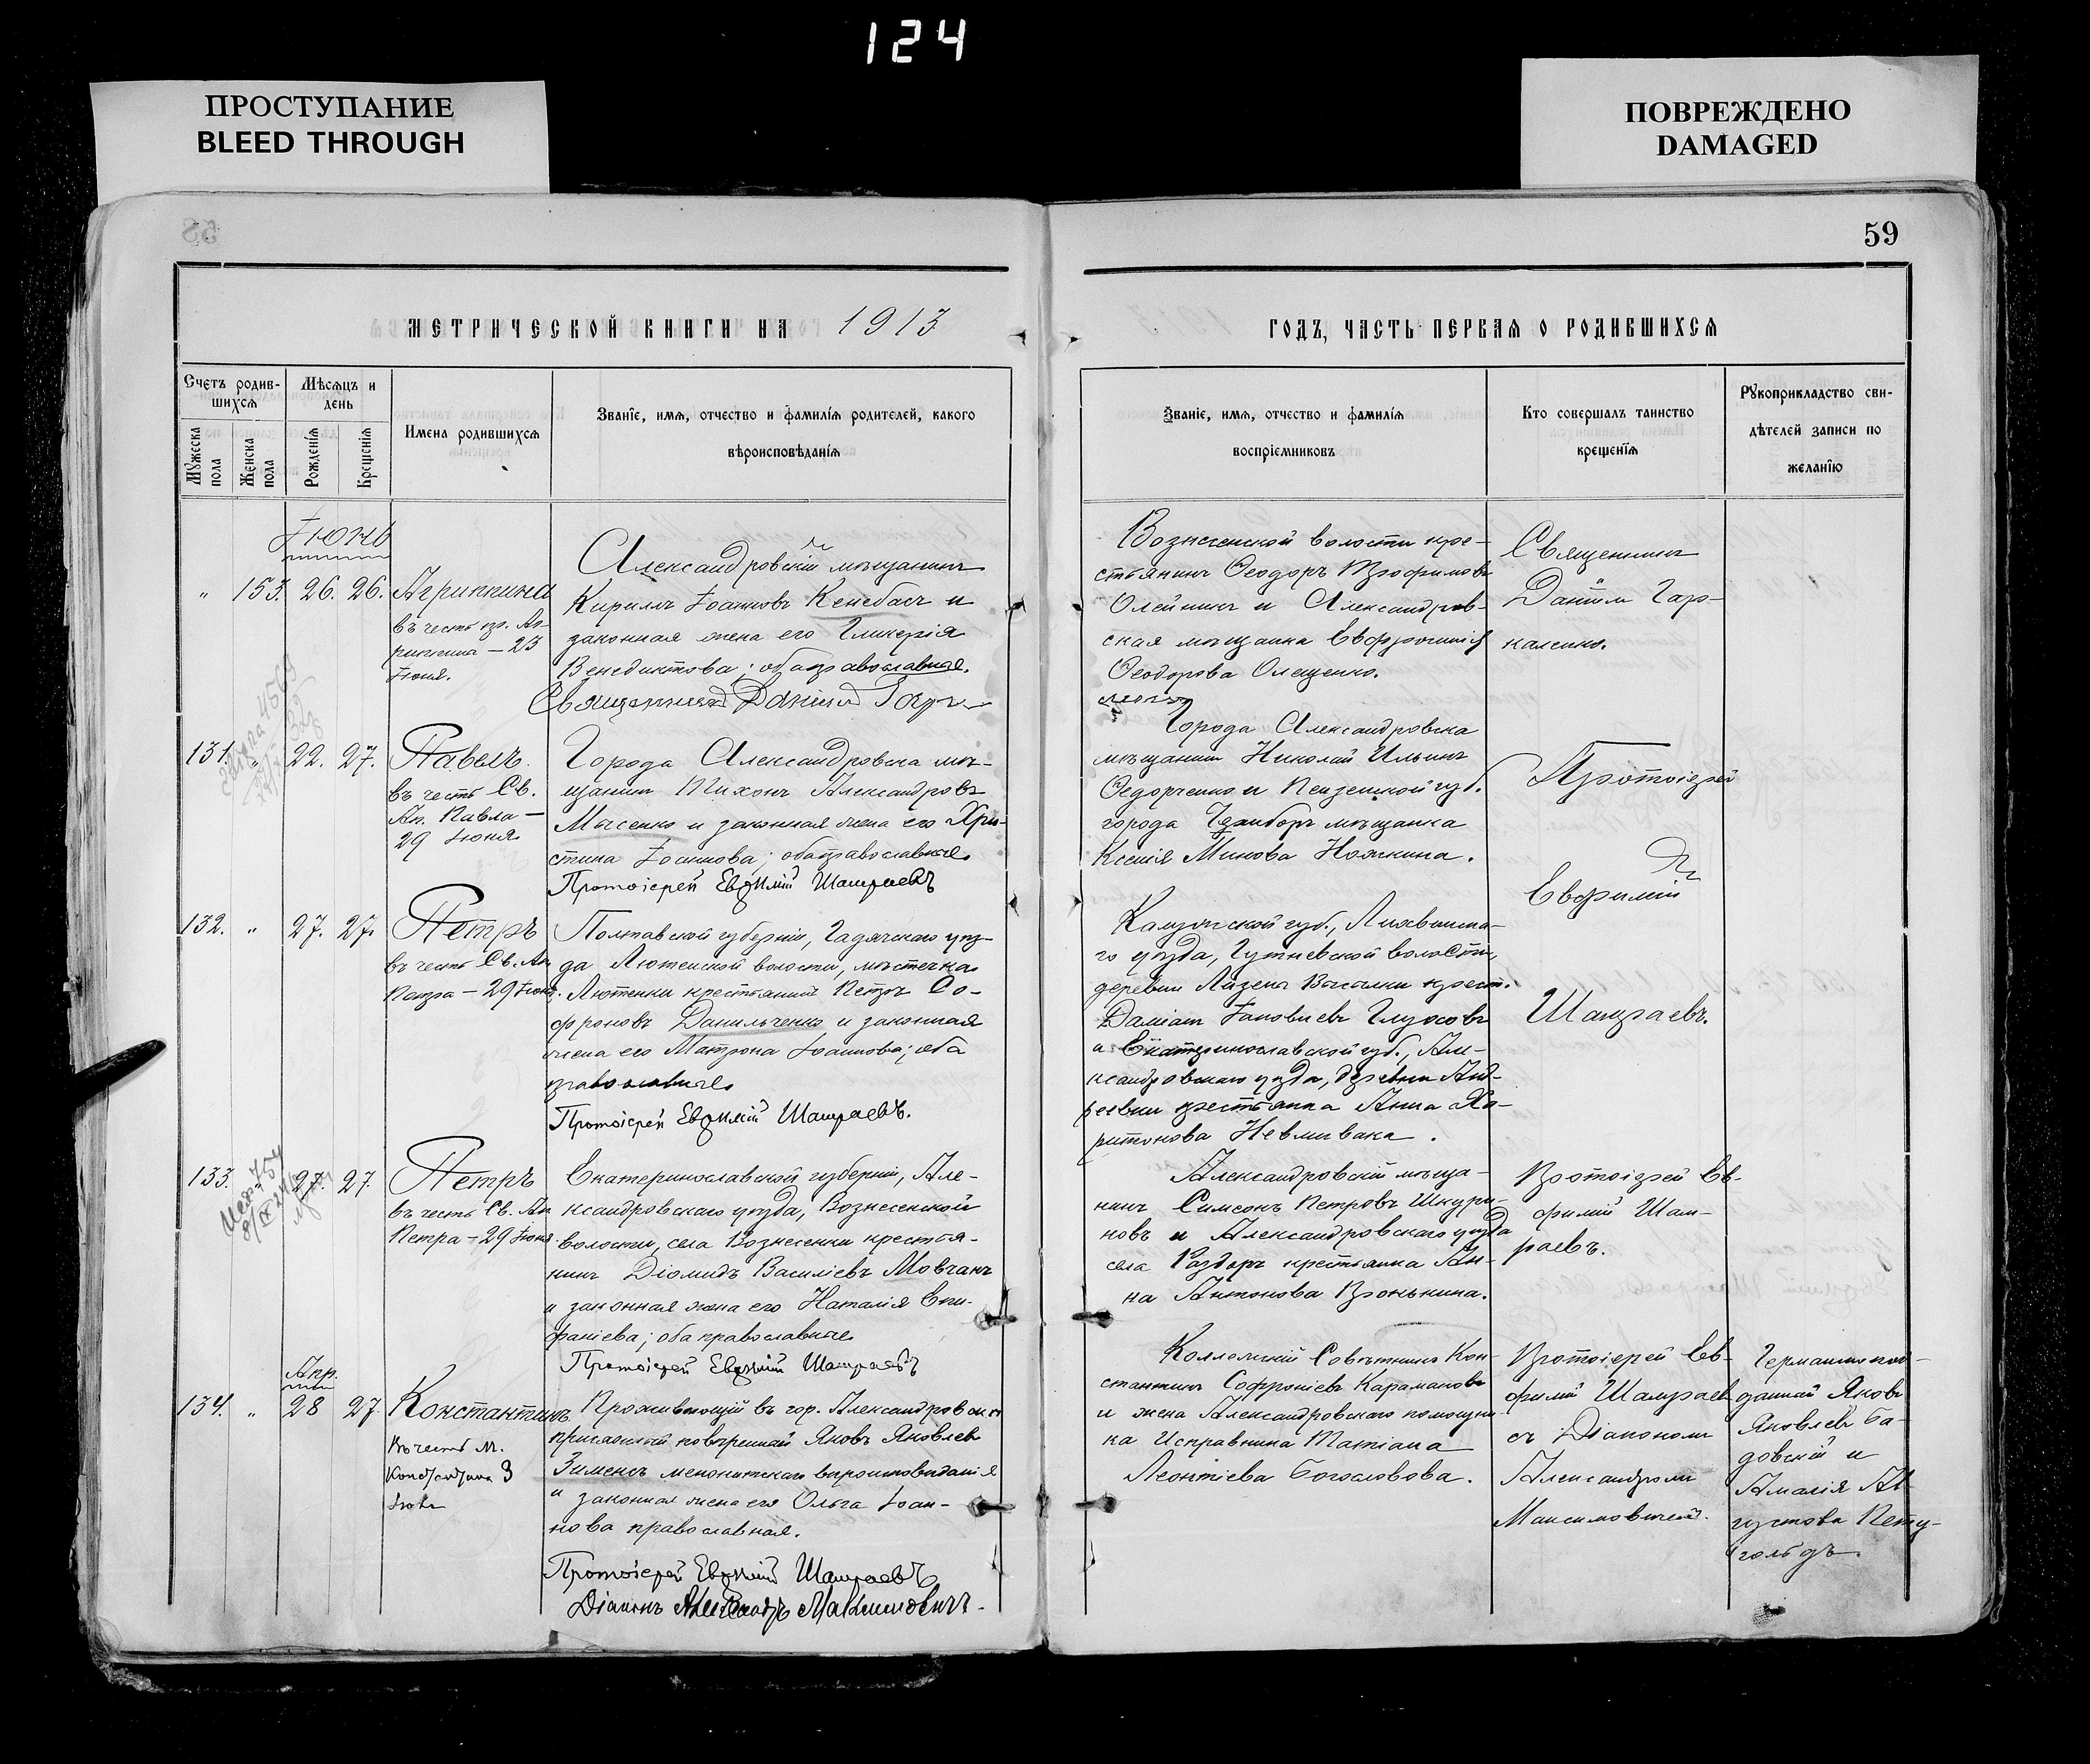 124
ПРОСТУПАНИЕ
BLEED THROUGH
ПОВРЕЖДЕНО
DAMAGED
59
МЕТРИЧЕСКОЙ КНИГИ НА 1913
ГОДЪ, ЧАСТЬ ПЕРВАЯ О РОДИВШИХСЯ
Счетъ родив-
шихся
Мужеска пола
Женска пола
Мѣсяцъ и
день
Рожденія
Крещенія
Имена родившихся
Званіе, имя, отчество и фамилія родителей, какого
вѣроисповѣданія
Званіе, имя, отчество и фамилія
воспріемниковъ
Кто совершалъ таинство
крещенія
Рукоприкладство сви-
дѣтелей записи по
желанію
Іюнь
" 153. 26. 26.
Агриппина
въ честь
рипины - 23
Іюня.
Александровскій мѣщанинъ
Кириллъ Іоанновъ Кенебасъ и
законная жена его Гликерія
Венедиктова; оба православные.
Священникъ Даніилъ
Вознесенской волости кре-
стьянинъ Ѳеодоръ Трофимовъ
Олейникъ и Александров-
ская мѣщанка Евфросинія
Ѳеодорова Олещенко.
Священникъ
Даніилъ Гар-
каленко.
131. " 22. 27.
Павелъ
въ честь Св.
Ап. Павла -
29 Іюня
Города Александровска мѣ-
щанинъ Тихонъ Александровъ
Мысенко и законная жена его Хри-
стина Іоаннова; оба православные
Протоіерей Евфимій Шамраевъ
Города Александровска
мѣщанинъ Николай Ильинъ
Ѳедорченко и Пензенской губ.
города мѣщанка
Ксенія Минова Ножкина.
Протоіерей
Евфимій
Шамраевъ.
132. " 27. 27.
Петръ
въ честь Св. Ап.
Петра - 29 Іюня.
Полтавской губерніи, Гадячскаго уѣз-
да Лютенской волости, мѣстечка
Лютенки крестьянинъ Петръ Со-
фроновъ Данильченко и законная
жена его Матрона Іоаннова; оба
православные
Протоіерей Евфимій Шамраевъ.
Калужской губ., Лихвинска-
го уѣзда, волости,
деревни крест.
Даміанъ Іаковлевъ Глусовъ
а Екатеринославской губ., Але-
ксандровскаго уѣзда, деревни Анд-
реевки крестьянка Анна Ха-
ритонова Невмивака.
133. " 27. 27.
Петръ
въ честь Св. Ап.
Петра - 29 Іюня.
Екатеринославской губерніи, Але-
ксандровскаго уѣзда, Вознесенской
волости, села Вознесенки крестья-
нинъ Діомидъ Василіевъ Мовчанъ
и законная жена его Наталія Епи-
фаніева; оба православные
Протоіерей Евфимій Шамраевъ
Александровскій мѣща-
нинъ Симеонъ Петровъ Шкури-
новъ и Александровскаго уѣзда
села Раздоръ крестьянка Ан-
на Антонова
Протоіерей Ев-
фимій Шам-
раевъ.
Апр.
134. " 28 27
Константинъ
Въ честь М.
Константина 3
Проживающій въ гор. Александровскѣ
присяжный повѣренный Яковъ Яковлевъ
Зименсъ менонитскаго вѣроисповѣданія
и законная жена его Ольга Іоан-
нова православная.
Протоіерей Евфимій Шамраевъ
Діаконъ Александръ Максимовичъ.
Коллежскій Совѣтникъ Кон-
стантинъ Софроніевъ Карамановъ
и жена Александровскаго помощни-
ка Исправника Татіана
Леонтіева Богословова.
Протоіерей Ев-
фимій Шамраевъ
съ Діакономъ
Александромъ
Максимовичемъ.
Германскопод-
данный Яковъ
Яковлевъ Ба-
довскій и
Амалія Ав-
густова Пету-
гольдъ.